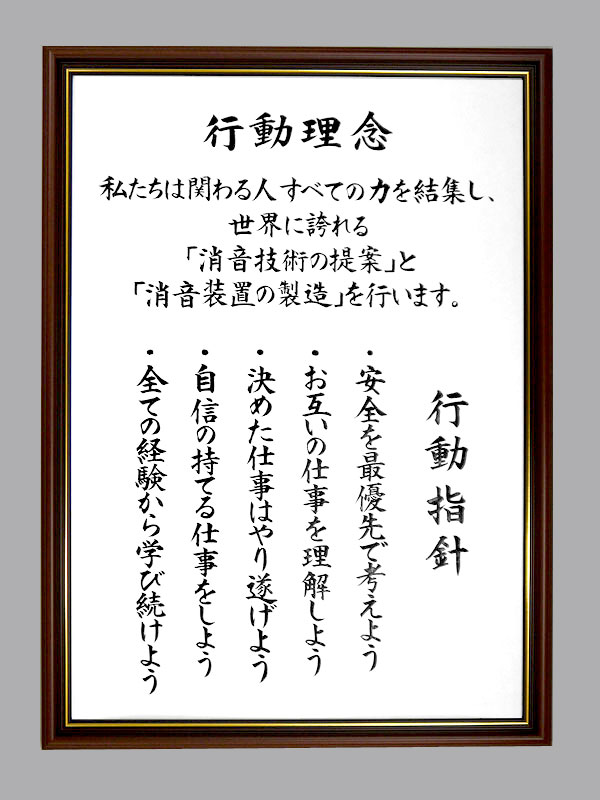 行動理念
私たちは関わる人すべての力を結集し、
世界に誇れる
「消音技術の提案」と
「消音装置の製造」を行います。
行動指針
・安全を最優先で考えよう
・お互いの仕事を理解しよう
・決めた仕事はやり遂げよう
・自信の持てる仕事をしよう
・全ての経験から学び続けよう